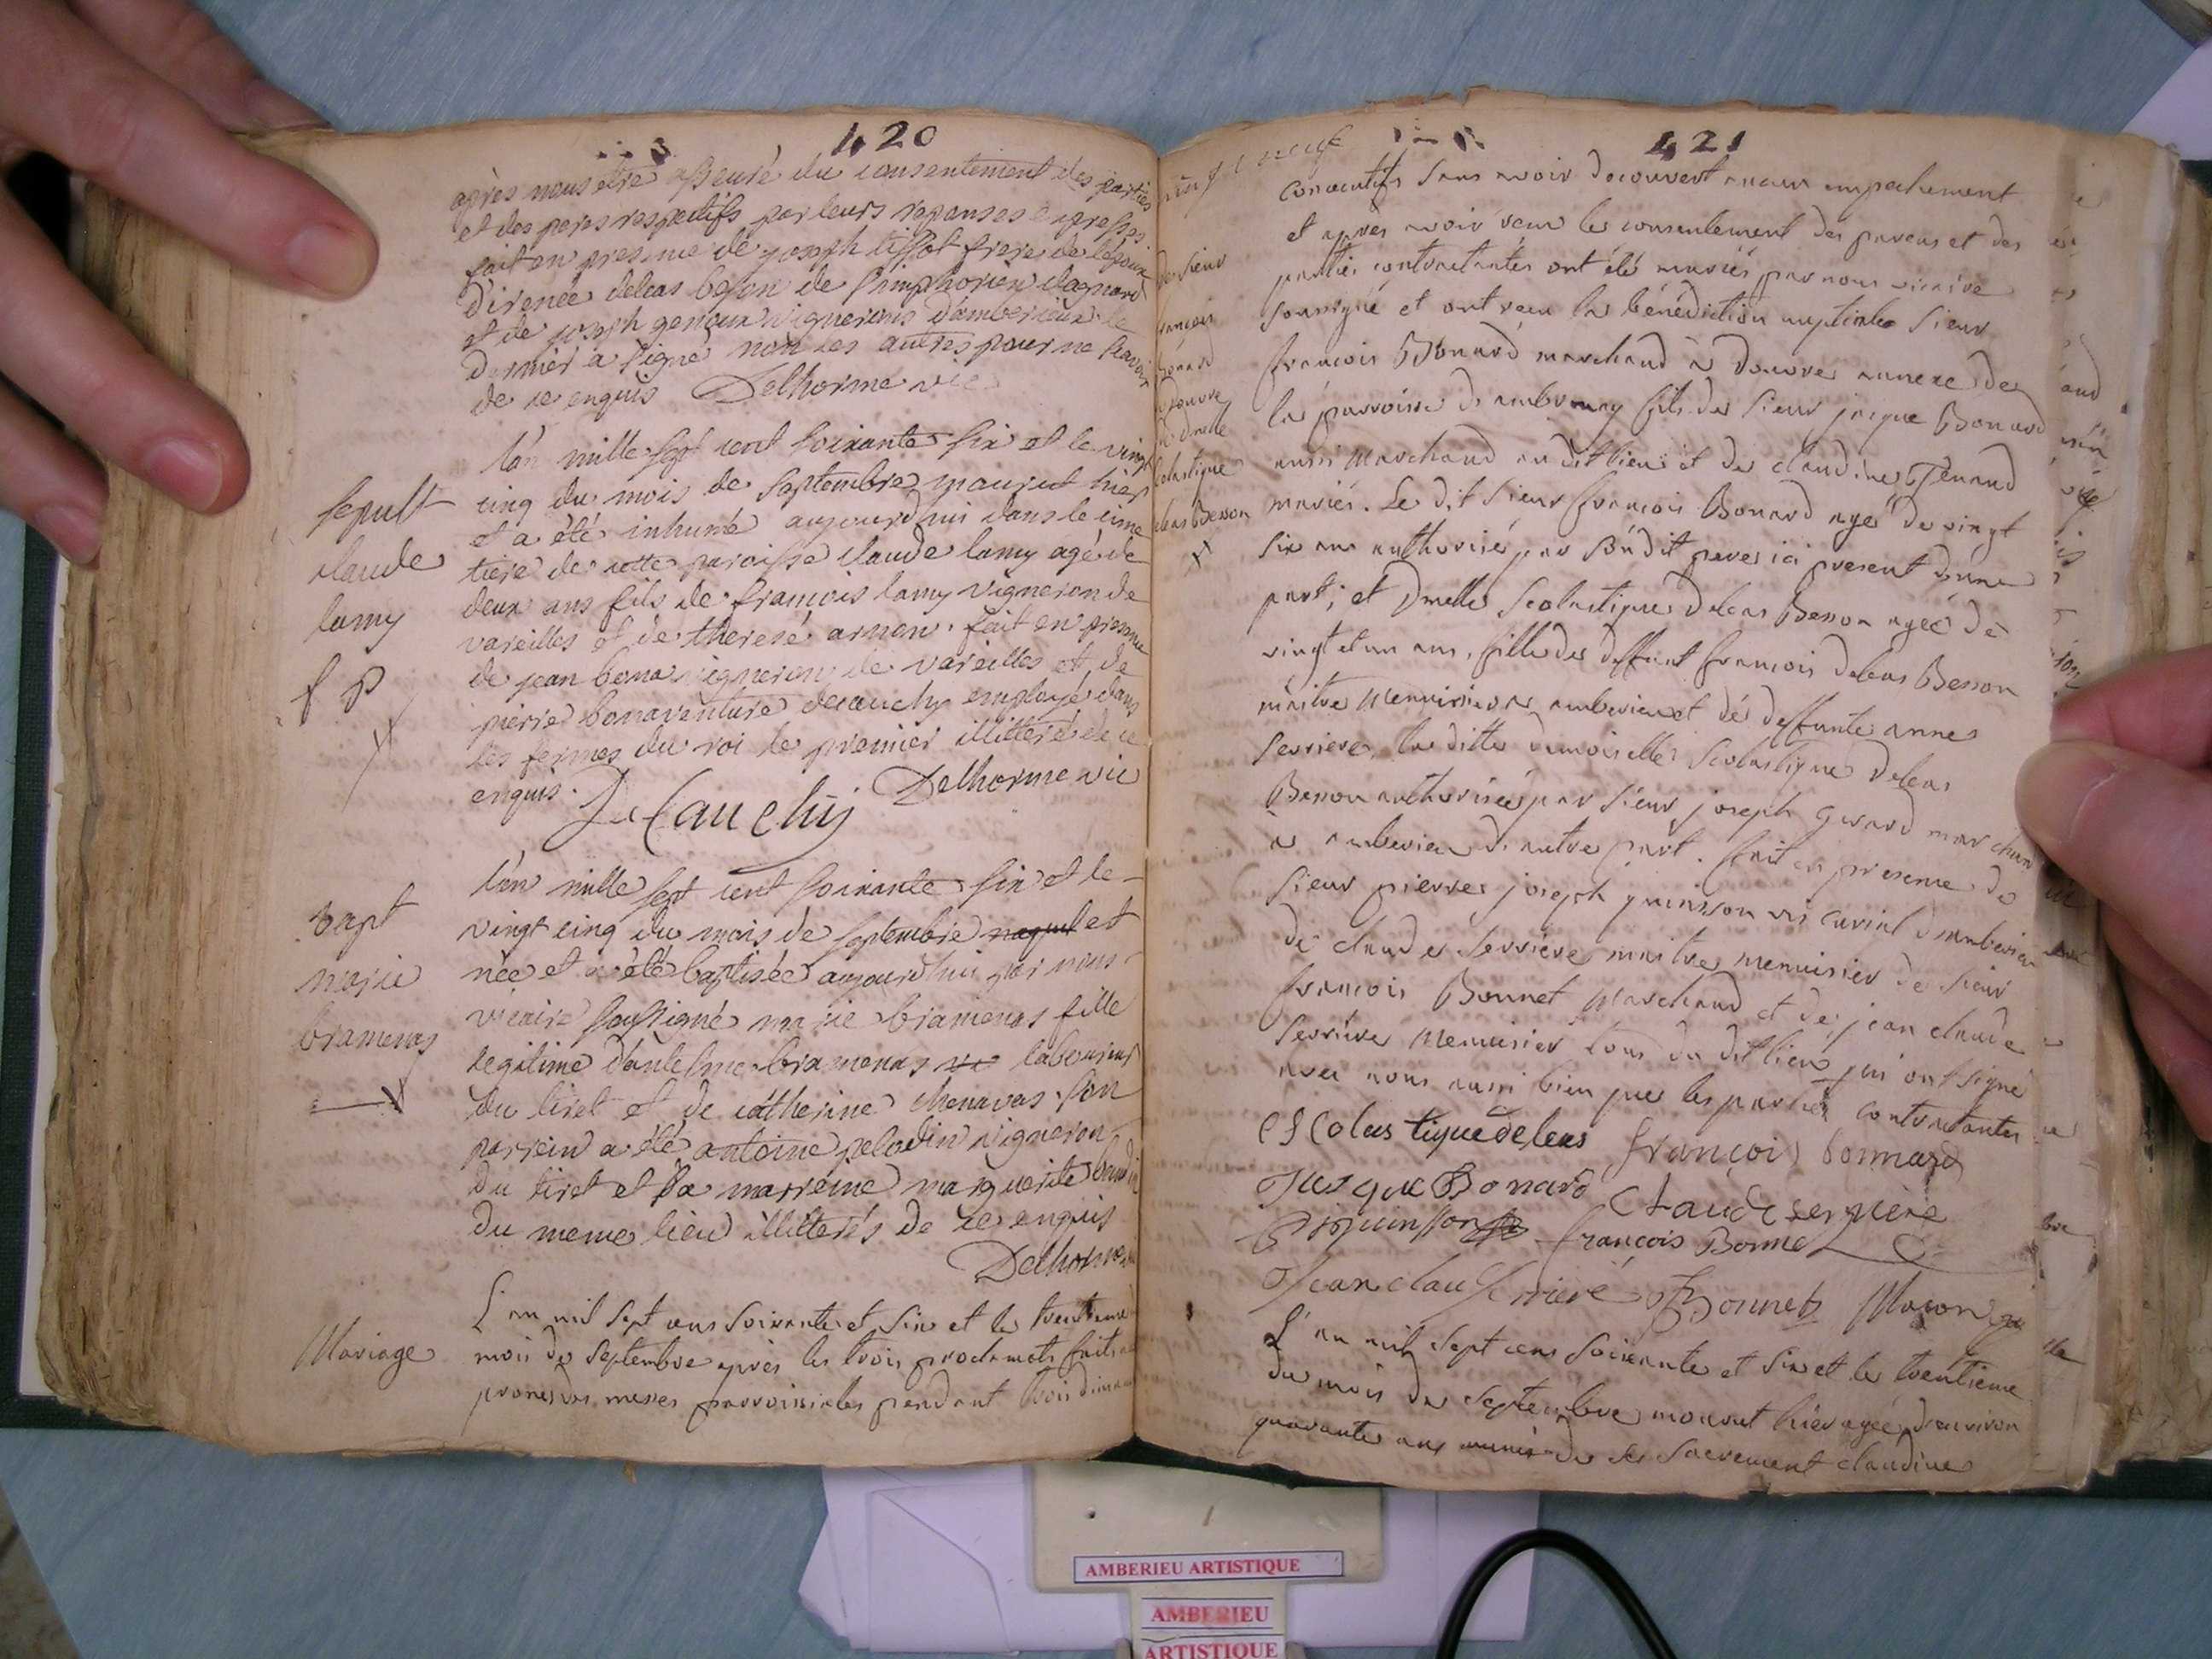 420
après nous etre asseuré du consentement des parties
et des peres respectifs par leurs reponses expresses
fait en presence de joseph tissot frere de l'epoux
d'irenée deleas beson de simphorien dagnard
et de joseph genoux vignerons d'amberieux le
dernier a signé non les autres pour ne scavoir
de ce enquis Delhorme vic
sepult
claude
lamy
f p
l'an mille sept cent soixante six et le vingt
cinq du mois de septembre mourut hier
et a été inhumé aujourd'hui dans le cime
tiere de cette paroisse claude lamy agé de
deux ans fils de francois lamy vigneron de
vareilles et de therese arnon. fait en presence
de jean bona vigneron de vareilles et de
pierre bonaventure decauchy employé dans
les fermes du roi le premier illitteré de ce
enquis. Delhorme vic
DeCauchy
bapt
marie
bramenas
l'an mille sept cent soixante six et le
vingt cinq du mois de septembre naquit et
née et a été baptisée aujourd'hui par nous
vicaire soussigné marie bramenas fille
legitime d'antelme bramenas laboureur
du tiret et de catherine chenavas. son
parrein a été antoine pelodin vigneron
du tiret et sa marreine marguerite
du meme lieu illitterés de ce enquis
Delhorme
Mariage
L'an mil sept cens soixante et six et le trentieme
mois de septembre après les trois proclamats faits
prones des messes parroissiales pendant trois diman
421
vingt neuf
de sieur
francois
Bonard
de douvre
et dmelle
scolastique
deleas Besson
consecutifs sans avoir decouvert aucun empechement
et après avoir receu le consentement des parens et des
parties contractantes ont été mariés par nous vicaire
soussigné et ont receu la bénédiction nuptiale sieur
francois Bonard marchand à douvre annexe de
la parroisse d'ambronay fils de sieur jacque Bonard
aussi marchand au dit lieu et de claudine Tenand
mariés. Le dit sieur francois Bonard agé de vingt
six ans authorisé par son dit pere ici present d'une
part; et Dmelle Scolastique deleas Besson agée de
vingt et un ans, fille de deffunt francois deleas Besson
maitre menuisier a amberieu et de deffunte anne
serriere, la ditte demoiselle Scolastique deleas
Besson authorisée par sieur joseph Gerard marchand
a amberieu d'autre part. fait en presence de
sieur pierre joseph quinsson vis curial d'amberieu
de claude serriere maitre menuisier de sieur
francois Bonnet marchand et de jean claude
serriere menuisier tous du dit lieu qui ont signé
avec nous aussi bien que les parties contractantes
escolas tique deleas françois bonnard
Jacque Bonard Claude serriere
quinsson francois Bonnet
Jean clau Serriere Bonnet
L'an mil sept cens soixante et six et le trentieme
du mois de septembre mourut hier agée d'environ
quarante ans munie de ses sacrement claudine
AMBERIEU ARTISTIQUE
AMBERIEU
ARTISTIQUE